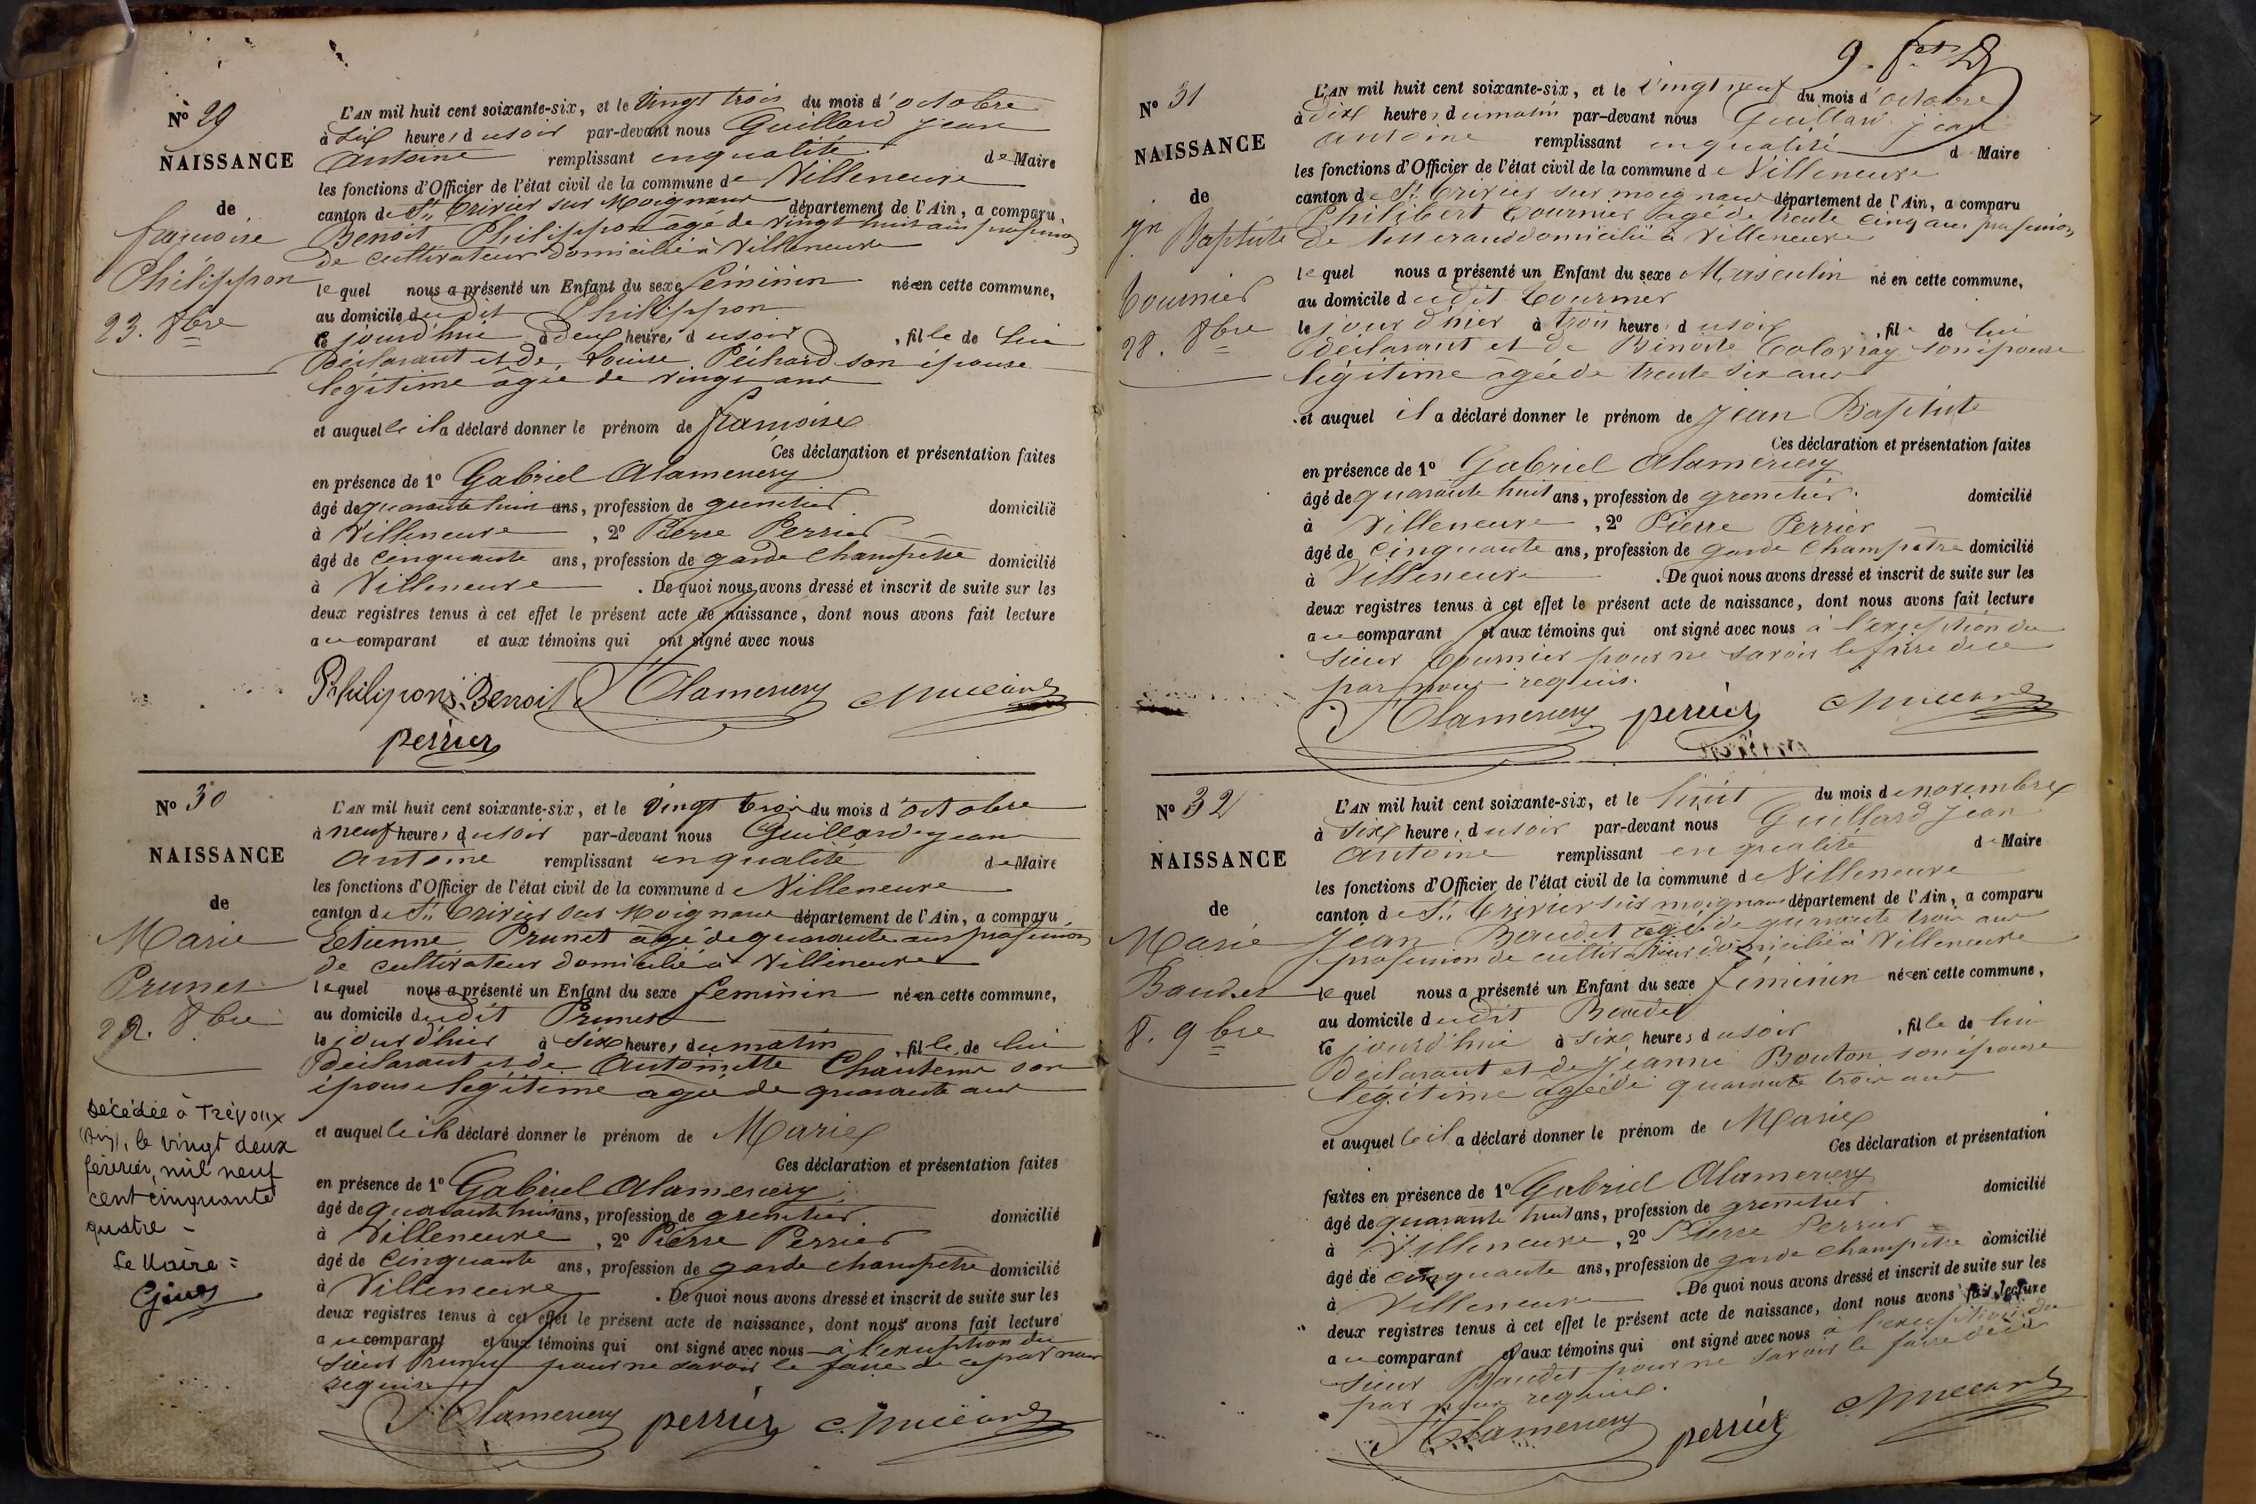 Nº 29
NAISSANCE
de
françoise
Philippon
23. 8bre
L'AN mil huit cent soixante-six, et le Vingt trois du mois d'octobre
à Six heures du soir par-devant nous Guillard jean
antoine remplissant en qualité de Maire
les fonctions d'Officier de l'état civil de la commune de Villeneuve
canton de St. Trivier sur Moignans département de l'Ain, a comparu
Benoit Philippon âgé de vingt huit ans profession
de cultivateur domicilié à Villeneuve
lequel nous a présenté un Enfant du sexe féminin né en cette commune,
au domicile dudit Philippon
ce jourd'hui à deux heures du soir, fille de lui
Déclarant et de Louise Pechard son épouse
légitime âgée de vingt ans
et auquelle il a déclaré donner le prénom de françoise
Ces déclaration et présentation faites
en présence de 1º Gabriel Alamercery
âgé de quarante huit ans, profession de grenetier domicilié
à Villeneuve, 2º Pierre Perrier
âgé de cinquante ans, profession de garde champêtre domicilié
à Villeneuve. De quoi nous avons dressé et inscrit de suite sur les
deux registres tenus à cet effet le présent acte de naissance, dont nous avons fait lecture
au comparant et aux témoins qui ont signé avec nous
Philipon Benoit Alamercery
perrier
Nº 30
NAISSANCE
de
Marie
Prunet
22. 8bre
L'AN mil huit cent soixante-six, et le Vingt trois du mois d'octobre
à neuf heures du soir par-devant nous Guillard jean
antoine remplissant en qualité de Maire
les fonctions d'Officier de l'état civil de la commune de Villeneuve
canton de St. Trivier sur Moignans département de l'Ain, a comparu
Etienne Prunet âgé de quarante ans profession
de cultivateur domicilié à Villeneuve
lequel nous a présenté un Enfant du sexe féminin né en cette commune,
au domicile dudit Prunet
le jour d'hier à six heures du matin, fille de lui
Déclarant et de Antoinette son
épouse légitime agée de quarante ans
et auquelle il a déclaré donner le prénom de Marie
Ces déclaration et présentation faites
en présence de 1º Gabriel Alamercery
âgé de quarante huit ans, profession de grenetier domicilié
à Villeneuve, 2º Pierre Perrier
âgé de cinquante ans, profession de garde champêtre domicilié
à Villeneuve. De quoi nous avons dressé et inscrit de suite sur les
deux registres tenus à cet effet le présent acte de naissance, dont nous avons fait lecture
au comparant et aux témoins qui ont signé avec nous à l'exception du
sieur Prunet pour ne savoir le faire de ce par nous
requis
Alamercery perrier
Décédée à Trévoux
(Ain), le vingt deux
février, mil neuf
cent cinquante
quatre -
Le Maire =
Nº 31
NAISSANCE
de
jn Baptiste
Tournier
28. 8bre
L'AN mil huit cent soixante-six, et le Vingt neuf du mois d'octobre
à dix heures du matin par-devant nous Guillard jean
antoine remplissant en qualité d Maire
les fonctions d'Officier de l'état civil de la commune de Villeneuve
canton de St. Trivier sur moignans département de l'Ain, a comparu
Philibert Tournier agé de trente cinq ans profession
de tisserand domicilié à Villeneuve
lequel nous a présenté un Enfant du sexe Masculin né en cette commune,
au domicile dudit Tournier
le jour d'hier à trois heures du soir, fils de lui
déclarant et de Benoite Colovray son épouse
légitime agée de trente six ans
et auquel il a déclaré donner le prénom de Jean Baptiste
Ces déclaration et présentation faites
en présence de 1º Gabriel Alamercery
âgé de quarante huit ans, profession de grenetier domicilié
à Villeneuve, 2º Pierre Perrier
âgé de cinquante ans, profession de garde champêtre domicilié
à Villeneuve. De quoi nous avons dressé et inscrit de suite sur les
deux registres tenus à cet effet le présent acte de naissance, dont nous avons fait lecture
au comparant et aux témoins qui ont signé avec nous à l'exception du
sieur Tournier pour ne savoir le faire de ce
par nous requis.
Alamercery perrier
Nº 32
NAISSANCE
de
Marie
Baudet
8. 9bre
L'AN mil huit cent soixante-six, et le huit du mois de novembre
à Six heures du soir par-devant nous Guillard Jean
antoine remplissant en qualité de Maire
les fonctions d'Officier de l'état civil de la commune de Villeneuve
canton de St. Trivier sur moignans département de l'Ain, a comparu
Jean Baudet agé de quarante trois ans
profession de cultivateur domicilié à Villeneuve
lequel nous a présenté un Enfant du sexe féminin né en cette commune,
au domicile dudit Baudet
ce jourd'hui à six heures du soir, fille de lui
Déclarant et de Jeanne Bouton son épouse
légitime agée de quarante trois ans
et auquelle il a déclaré donner le prénom de Marie
Ces déclaration et présentation
faites en présence de 1º Gabriel Alamercery
âgé de quarante huit ans, profession de grenetier domicilié
à Villeneuve, 2º Pierre Perrier
âgé de cinquante ans, profession de garde champêtre domicilié
à Villeneuve. De quoi nous avons dressé et inscrit de suite sur les
deux registres tenus à cet effet le présent acte de naissance, dont nous avons fait lecture
au comparant et aux témoins qui ont signé avec nous à l'exception du
sieur Baudet pour ne savoir le faire de ce
par nous requis.
Alamercery perrier